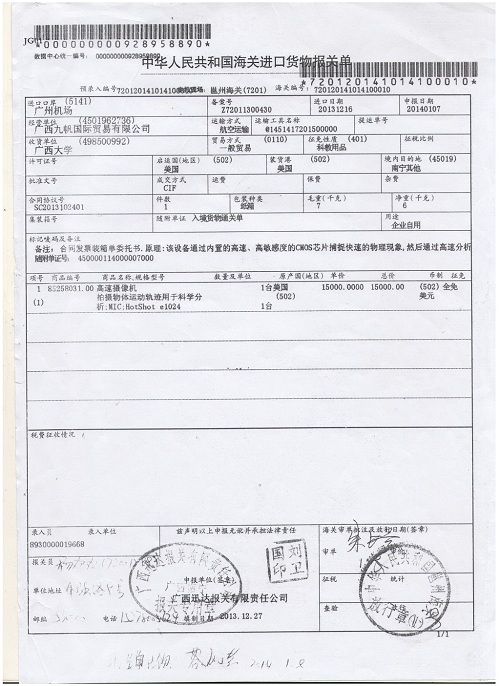 JG01
*000000000928958890*
数据中心统一编号: 000000000928958890
中华人民共和国海关进口货物报关单
*720120141014100010*
预录入编号:720120141014100 海关编号: 720120141014100010
进口口岸 (5141) 备案号 进口日期 申报日期
广州机场 Z72011300430 20131216 20140107
经营单位 (4501962736) 运输方式 运输工具名称 提运单号
广西九帆国际贸易有限公司 航空运输 @1451417201500000
收货单位 (498500992) 贸易方式 (0110) 征免性质 (401) 征税比例
广西大学 一般贸易 科教用品
许可证号 启运国(地区) (502) 装货港 (502) 境内目的地 (45019)
美国 美国 南宁其他
批准文号 成交方式 运费 保费 杂费
CIF
合同协议号 件数 包装种类 毛重(千克) 净重(千克)
SC2013102401 1 纸箱 7 6
集装箱号 随附单证 入境货物通关单 用途
企业自用
标记唛码及备注
备注: 合同发票装箱单委托书.原理:该设备通过内置的高速、高敏感度的CMOS芯片捕捉快速的物理现象,然后通过高速分析
随附单证号: 450000114000007000
项号 商品编号 商品名称,规格型号 数量及单位 原产国(地区) 单价 总价 币制 征免
1 85258031.00 高速摄像机 1台美国 15000.0000 15000.00 (502) 全免
(1) 拍摄物体运动轨迹用于科学分 (502) 美元
析;MIC;HotShot e1024 1台
税费征收情况
录入员 录入单位 兹声明以上申报无讹并承担法律责任 海关审单批注及放行日期(签章)
8930000019668
审单
报关员
刘卫印
征税 统计
申报单位(签章)
报关专用章
单位地址
广西迅达报关有限责任公司
查验
邮编 电话 2013.12.27
1/1